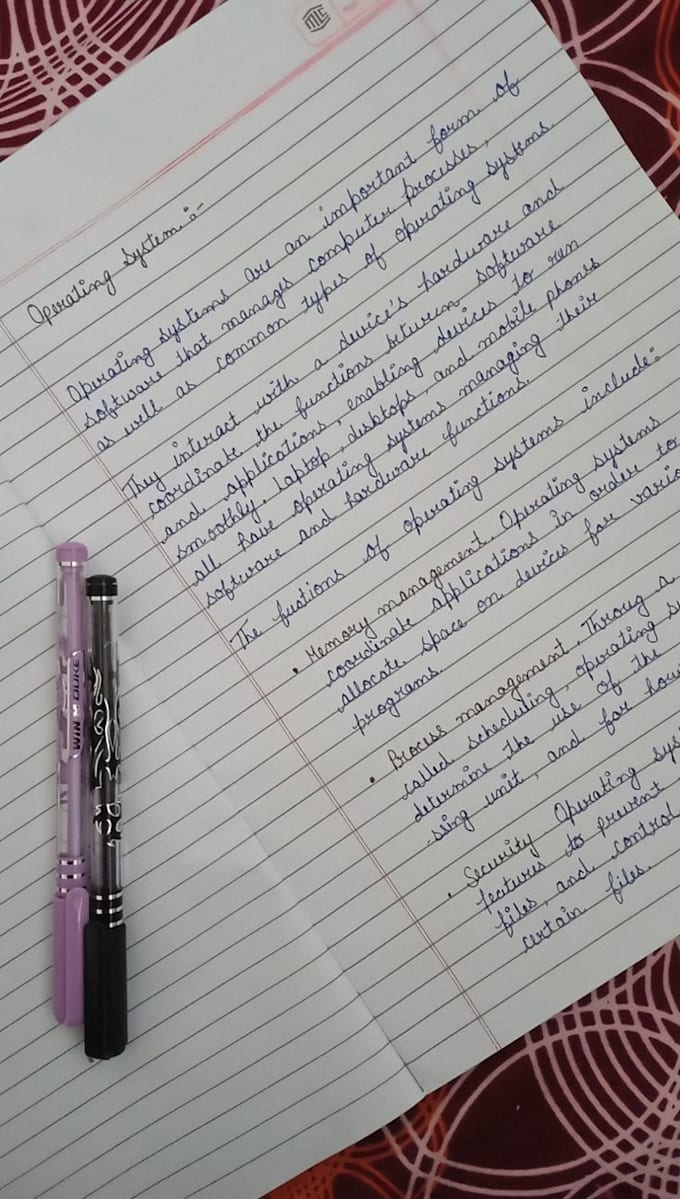 MLS
Operating System :-
Operating systems are an important form of
software that manages computer processes,
as well as common types of operating systems.
They interact with a device's hardware and
coordinate the functions between software
and applications, enabling devices to run
smoothly. Laptop, desktops, and mobile phones
all have operating systems managing their
software and hardware functions.
The fuctions of operating systems include:
• Memory management. Operating systems
coordinate applications in order to
allocate space on devices for vario
programs.
• Process management. Throug a
called scheduling, operating s
determine the use of the
ssing unit, and for how
• Security Operating sys
features to prevent
files, and control
certain files.
WIN